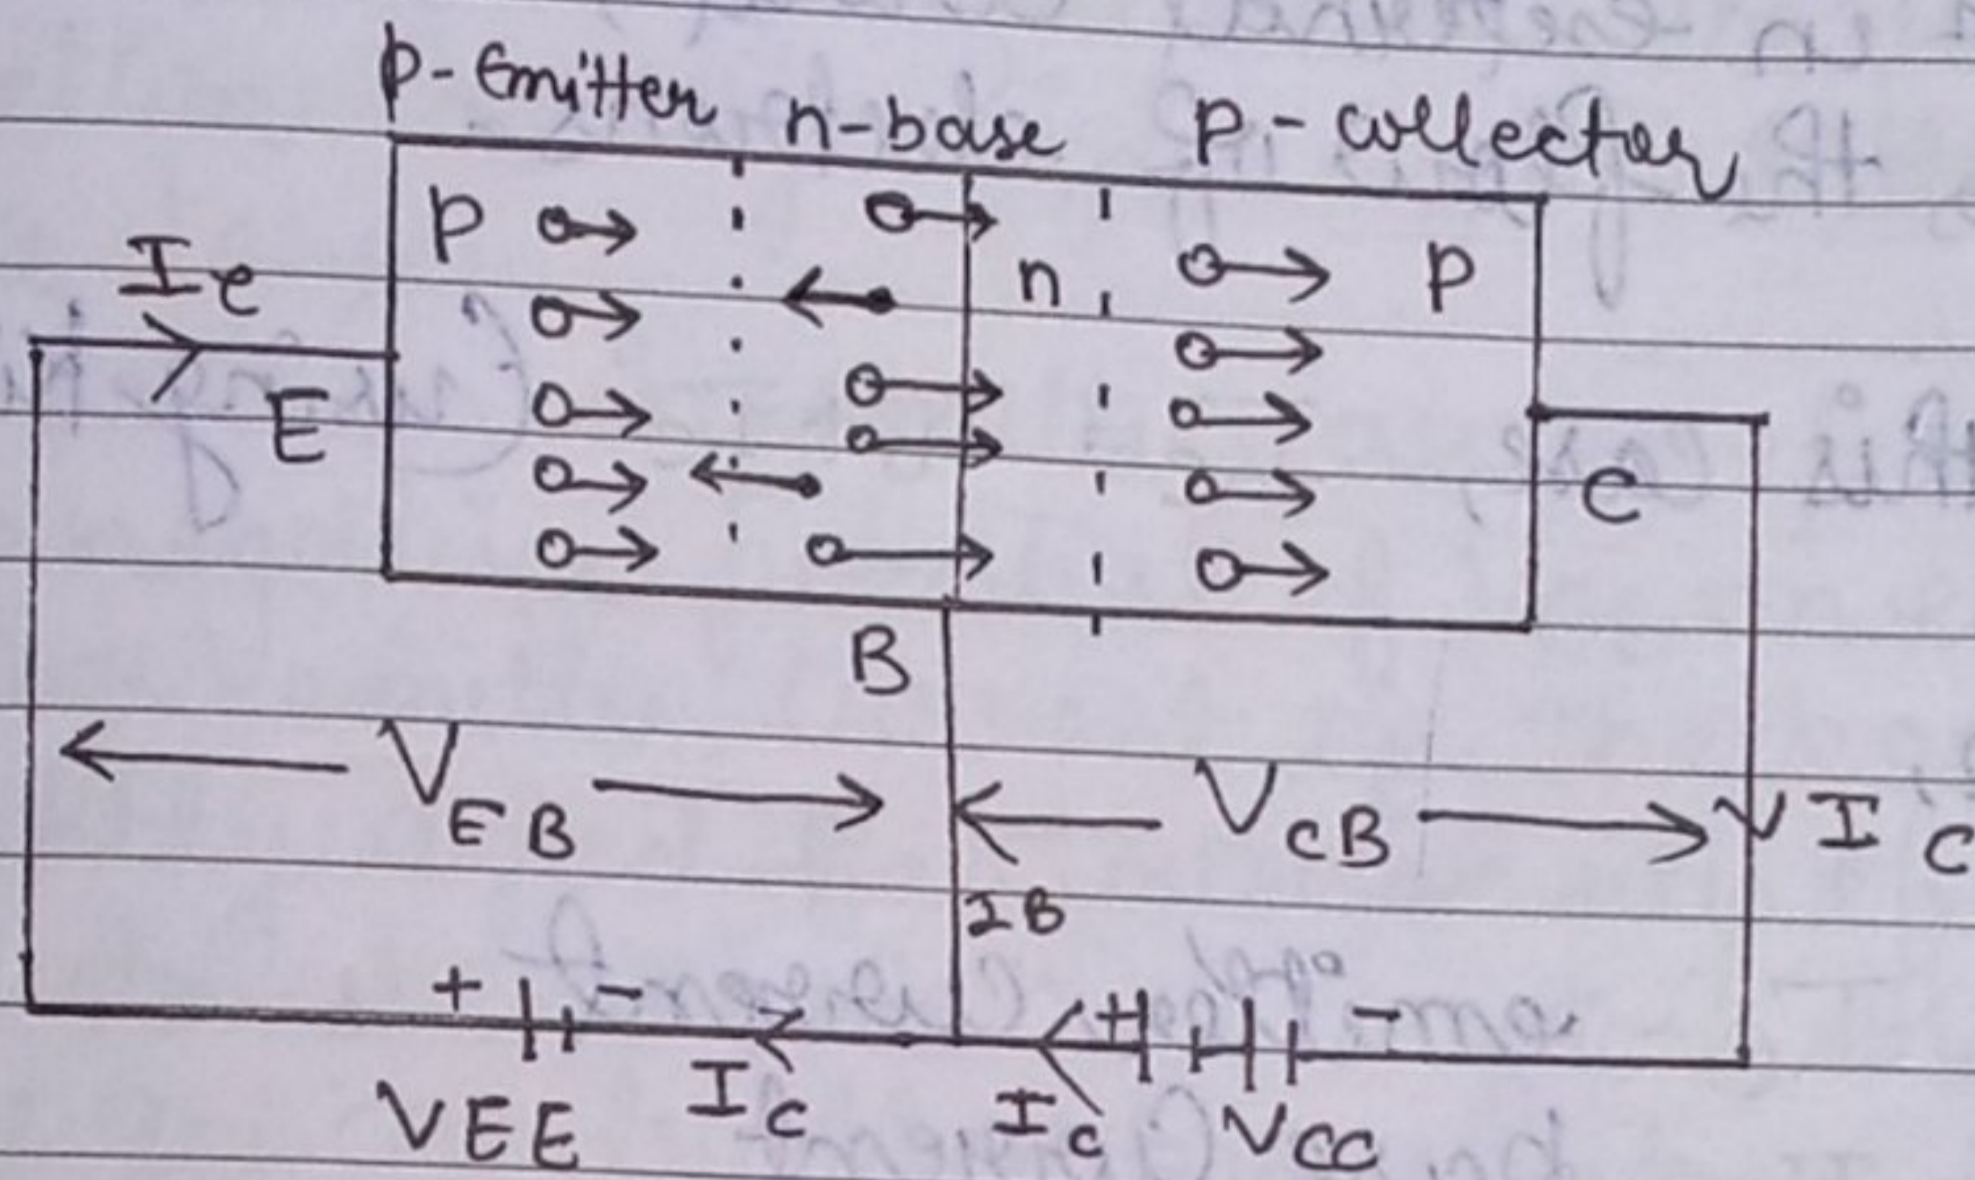 p-Emitter n-base p-collector
p n p
Ie
E
C
B
VEB VCB IC
IB
+ - + -
VEE Ic Ic VCC